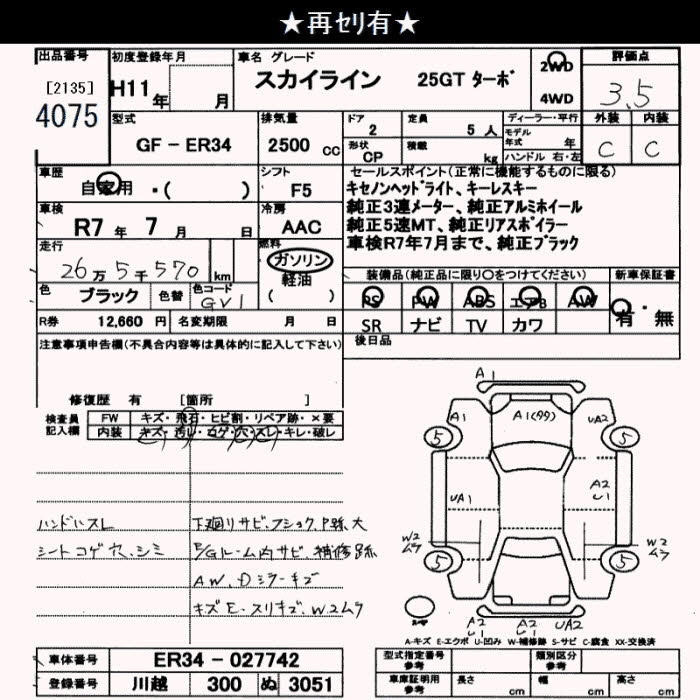 ★再ｾﾘ有★
出品番号 初度登録年月 車名 グレード 評価点
[2135] H11年 月 スカイライン 25GT ターボ 2WD 3.5
4075 4WD
型式 排気量 ドア 定員 ディーラー・平行 外装 内装
GF－ER34 2500 cc 2 5 人 モデル年式 年 C C
形状 積載 ハンドル 右・左
CP kg
車歴 シフト セールスポイント(正常に機能するものに限る)
自家用 ・( ) F5 キセノンヘッドライト、キーレスキー
車検 冷房 純正3連メーター、純正アルミホイール
R7 年 7 月 日 AAC 純正5速MT、純正リアスポイラー
走行 燃料 車検R7年7月まで、純正ブラック
26万5千570 km ガソリン 装備品(純正品に限り○をつけてください) 新車保証書
軽油
( )
色 ブラック 色替 色コード GV1 PS PW ABS エアB AW 有・無
R券 12,660 円 名変期限 月 日 SR ナビ TV カワ
注意事項申告欄(不具合内容等は具体的に記入して下さい) 後日品
修復歴 有 [箇所 ]
検査員 FW キズ・飛石・ヒビ割・リペア跡・×要
記入欄 内装 キズ・汚れ・コゲ・穴・スレ・キレ・破レ
A1
A1 A1(99) UA2
5 5
UA1 A2 U1
W2ムラ W2ムラ
5 5
UA2 A2 U1 UA2
ハンドルスレ 下廻りサビ、フショク、P跡大
シートコゲ穴、シミ E/Gルーム内サビ、補修跡
AW、Dミラーキズ
キズE・スリキズ、W2ムラ
A-キズ E-エクボ U-凹み W-補修跡 S-サビ C-腐食 XX-交換済
車体番号 ER34－027742 型式指定番号 参考 類別区分 参考
登録番号 川越 300 ぬ 3051 車庫証明用 参考 長さ cm 幅 cm 高さ cm